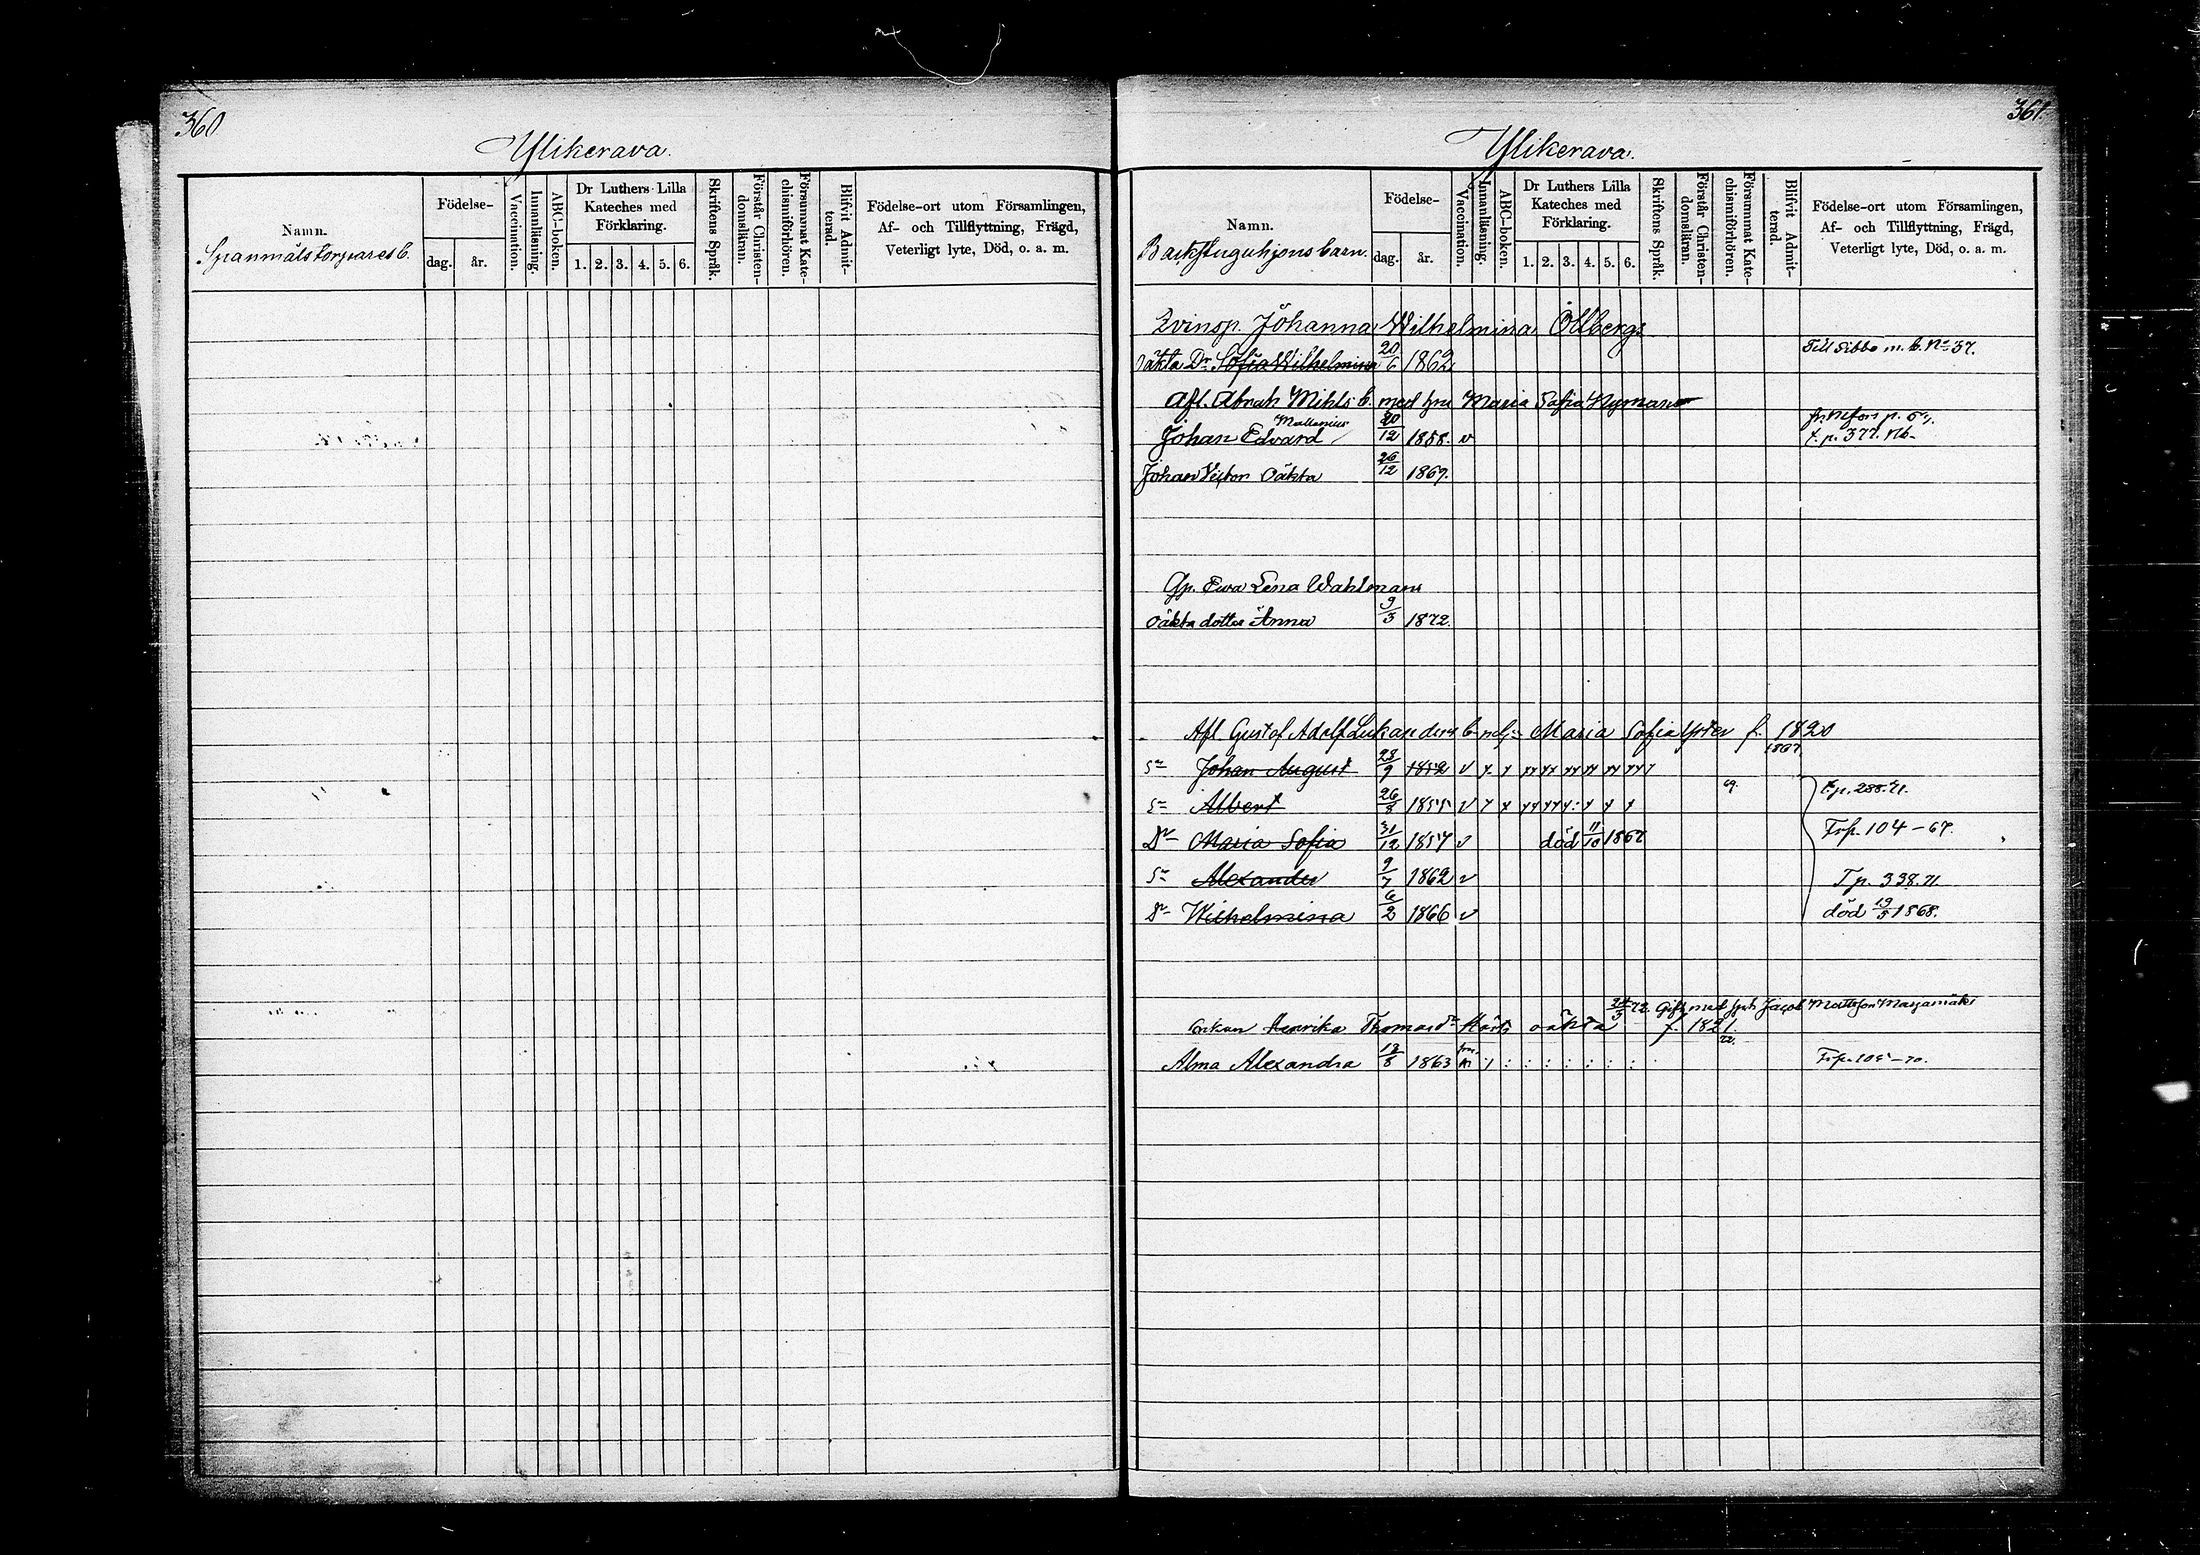 360
Ylikerava.
Namn.
Födelse-
dag.
år.
Vaccination.
Innanläsning.
ABC-boken.
Dr Luthers Lilla
Kateches med
Förklaring.
1. 2. 3. 4. 5. 6.
Skriftens Språk.
Förstår Christen-
domsläran.
Försummat Kate-
chismiförhören.
Blifvit Admit-
terad.
Födelse-ort utom Församlingen,
Af- och Tillflyttning, Frägd,
Veterligt lyte, Död, o. a. m.
361.
Ylikerava.
Namn.
Backstuguhjons barn.
Födelse-
dag.
år.
Vaccination.
Innanläsning.
ABC-boken.
Dr Luthers Lilla
Kateches med
Förklaring.
1. 2. 3. 4. 5. 6.
Skriftens Språk.
Förstår Christen-
domsläran.
Försummat Kate-
chismiförhören.
Blifvit Admit-
terad.
Födelse-ort utom Församlingen,
Af- och Tillflyttning, Frägd,
Veterligt lyte, Död, o. a. m.
Johanna Wilhelmina Öllbergs
oäkta Dr Sofia Wilhelmina 20/6 1862 Till Sibbo m. b. No 37.
Afl. Abrah Mihls b. med hu Maria Sofia Nyman
Johan Edvard 20/12 1858. v p. 377.
Johan Victor oäkta 26/12 1867.
Gp. Ewa Lena Wahlman
oäkta dotter Anna 9/3 1872.
Afl Gustaf Adolf Maria Sofia f. 1820
Sn Johan August 23/9 1852 v 1867
Sn Albert 26/8 1855 v 69. p. 288.71.
Dr Maria Sofia 31/12 1857 v död 11/10 1867 Frp. 104-67.
Sn Alexander 9/7 1862 v T p. 338.71.
Dr Wilhelmina 6/2 1866 v död 19/5 1868.
24/3 72. Gift med Jacob Mattsson Marjamäki
Enkan Henrika Thomasdr oäkta f. 1821.
72.
Alma Alexandra 13/8 1863 Frp. 105-70.